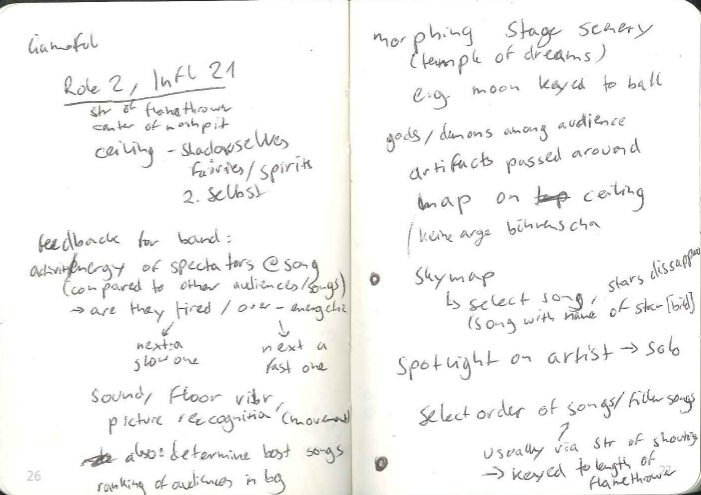 Gameful
Role 2, Infl 21
str of flamethrower
center of moshpit
ceiling - shadowselves
fairies/spirits
2. Selbst
feedback for band:
energy of spectators @ song
(compared to other audiences/songs)
→ are they tired / over-energetic
next: a
slow one
next a
fast one
sound, floor vibr,
picture recognition (movement)
also: determine best songs
ranking of audiences in bg
26
morphing stage scenery
(temple of dreams)
e.g. moon keyed to ball
gods/demons among audience
artifacts passed around
map on ceiling
keine arge
skymap
↳ select song, stars dissappear
(song with name of star [bild]
spotlight on artist → solo
select order of songs/filler songs
usually via str of shouting
→ keyed to length of
flamethrower